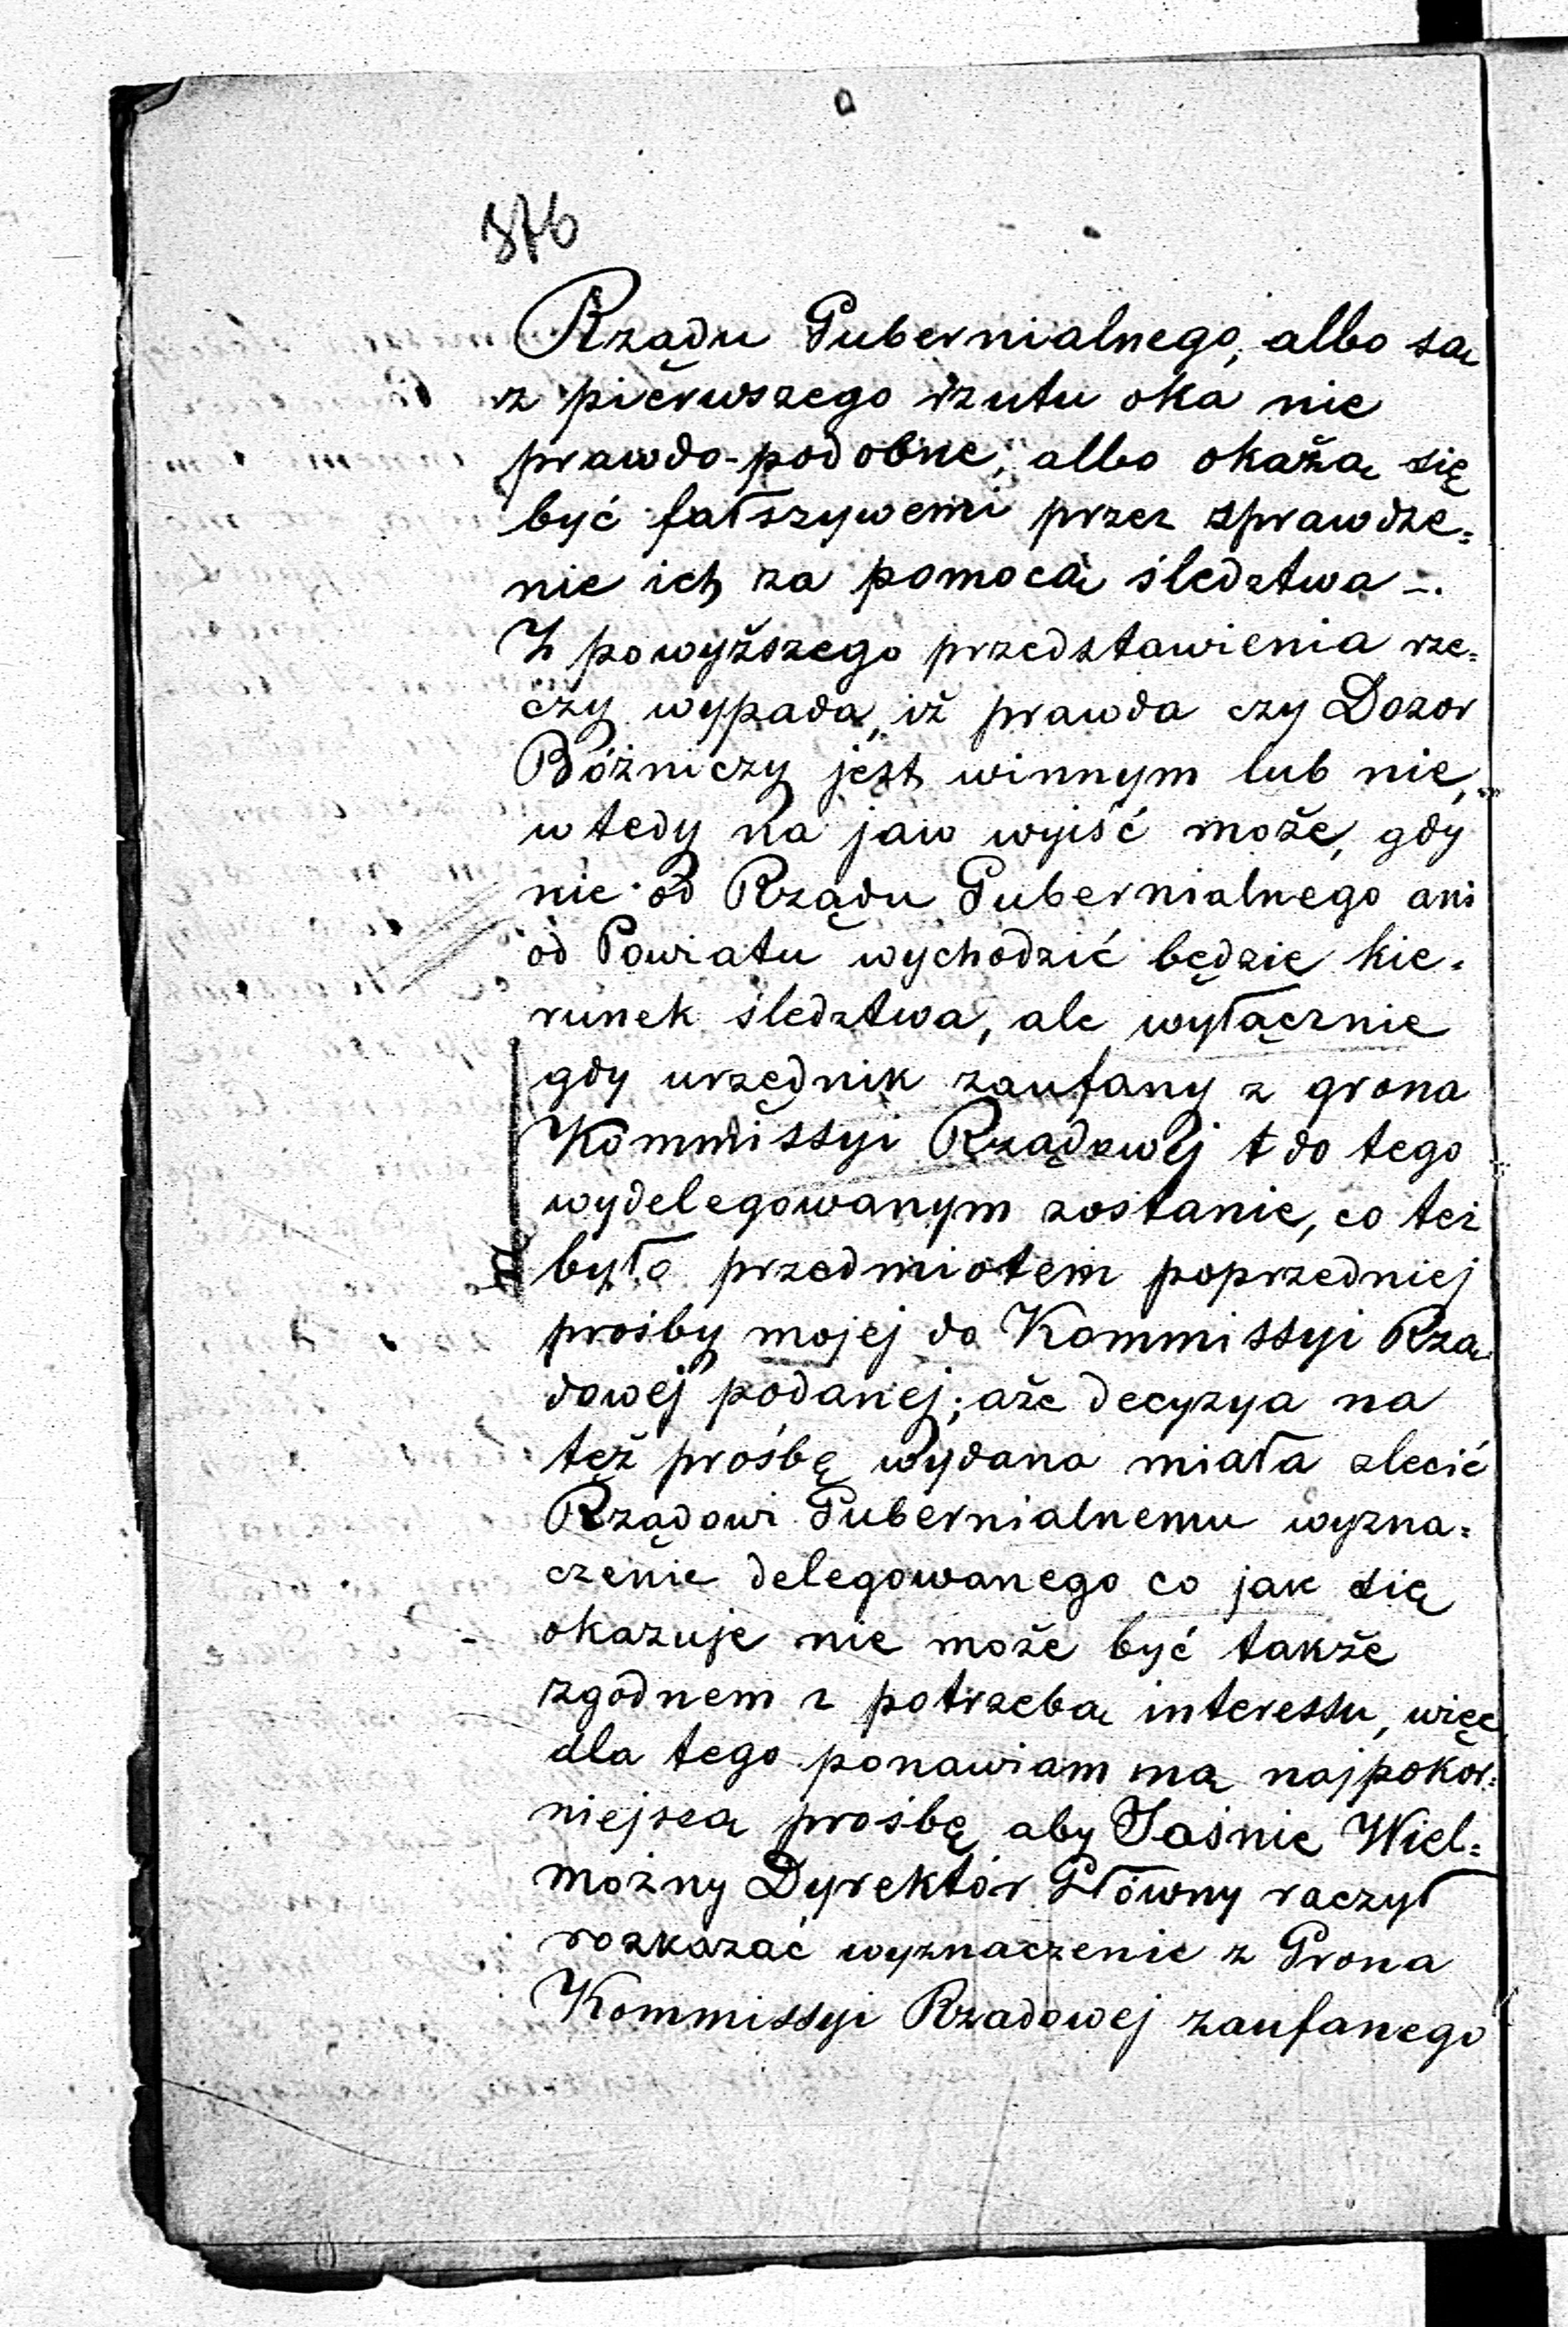 376
Rządu Gubernialnego, albo są
z piérwszego rzutu oka nie
prawdo-podobne, albo okażą się
być fałszywemi przez sprawdze=
nie ich za pomocą śledztwa -.
Z powyższego przedstawienia rze=
czy wypada, iż prawda czy Dozor
Bóżniczy jest winnym lub nie,
wtedy na jaw wyjść może, gdy
nie od Rządu Gubernialnego ani
od Powiatu wychodzić będzie kie=
runek śledztwa, ale wyłącznie
gdy urzędnik zaufany z grona
Kommissyi Rządowej do tego
wydelegowanym zostanie, co też
było przedmiotem poprzedniej
prośby mojej do Kommissyi Rzą
dowej podanej; aże decyzya na
też prośbę wydana miała zlecić
Rządowi Gubernialnemu wyzna=
czenie delegowanego co jak się
okazuje nie może być także
zgodnem z potrzebą interessu, więc
dla tego ponawiam mą najpokor=
niejszą prośbę aby Jaśnie Wiel=
możny Dyrektór Główny raczył
rozkazać wyznaczenie z Grona
Kommissyi Rządowej zaufanego